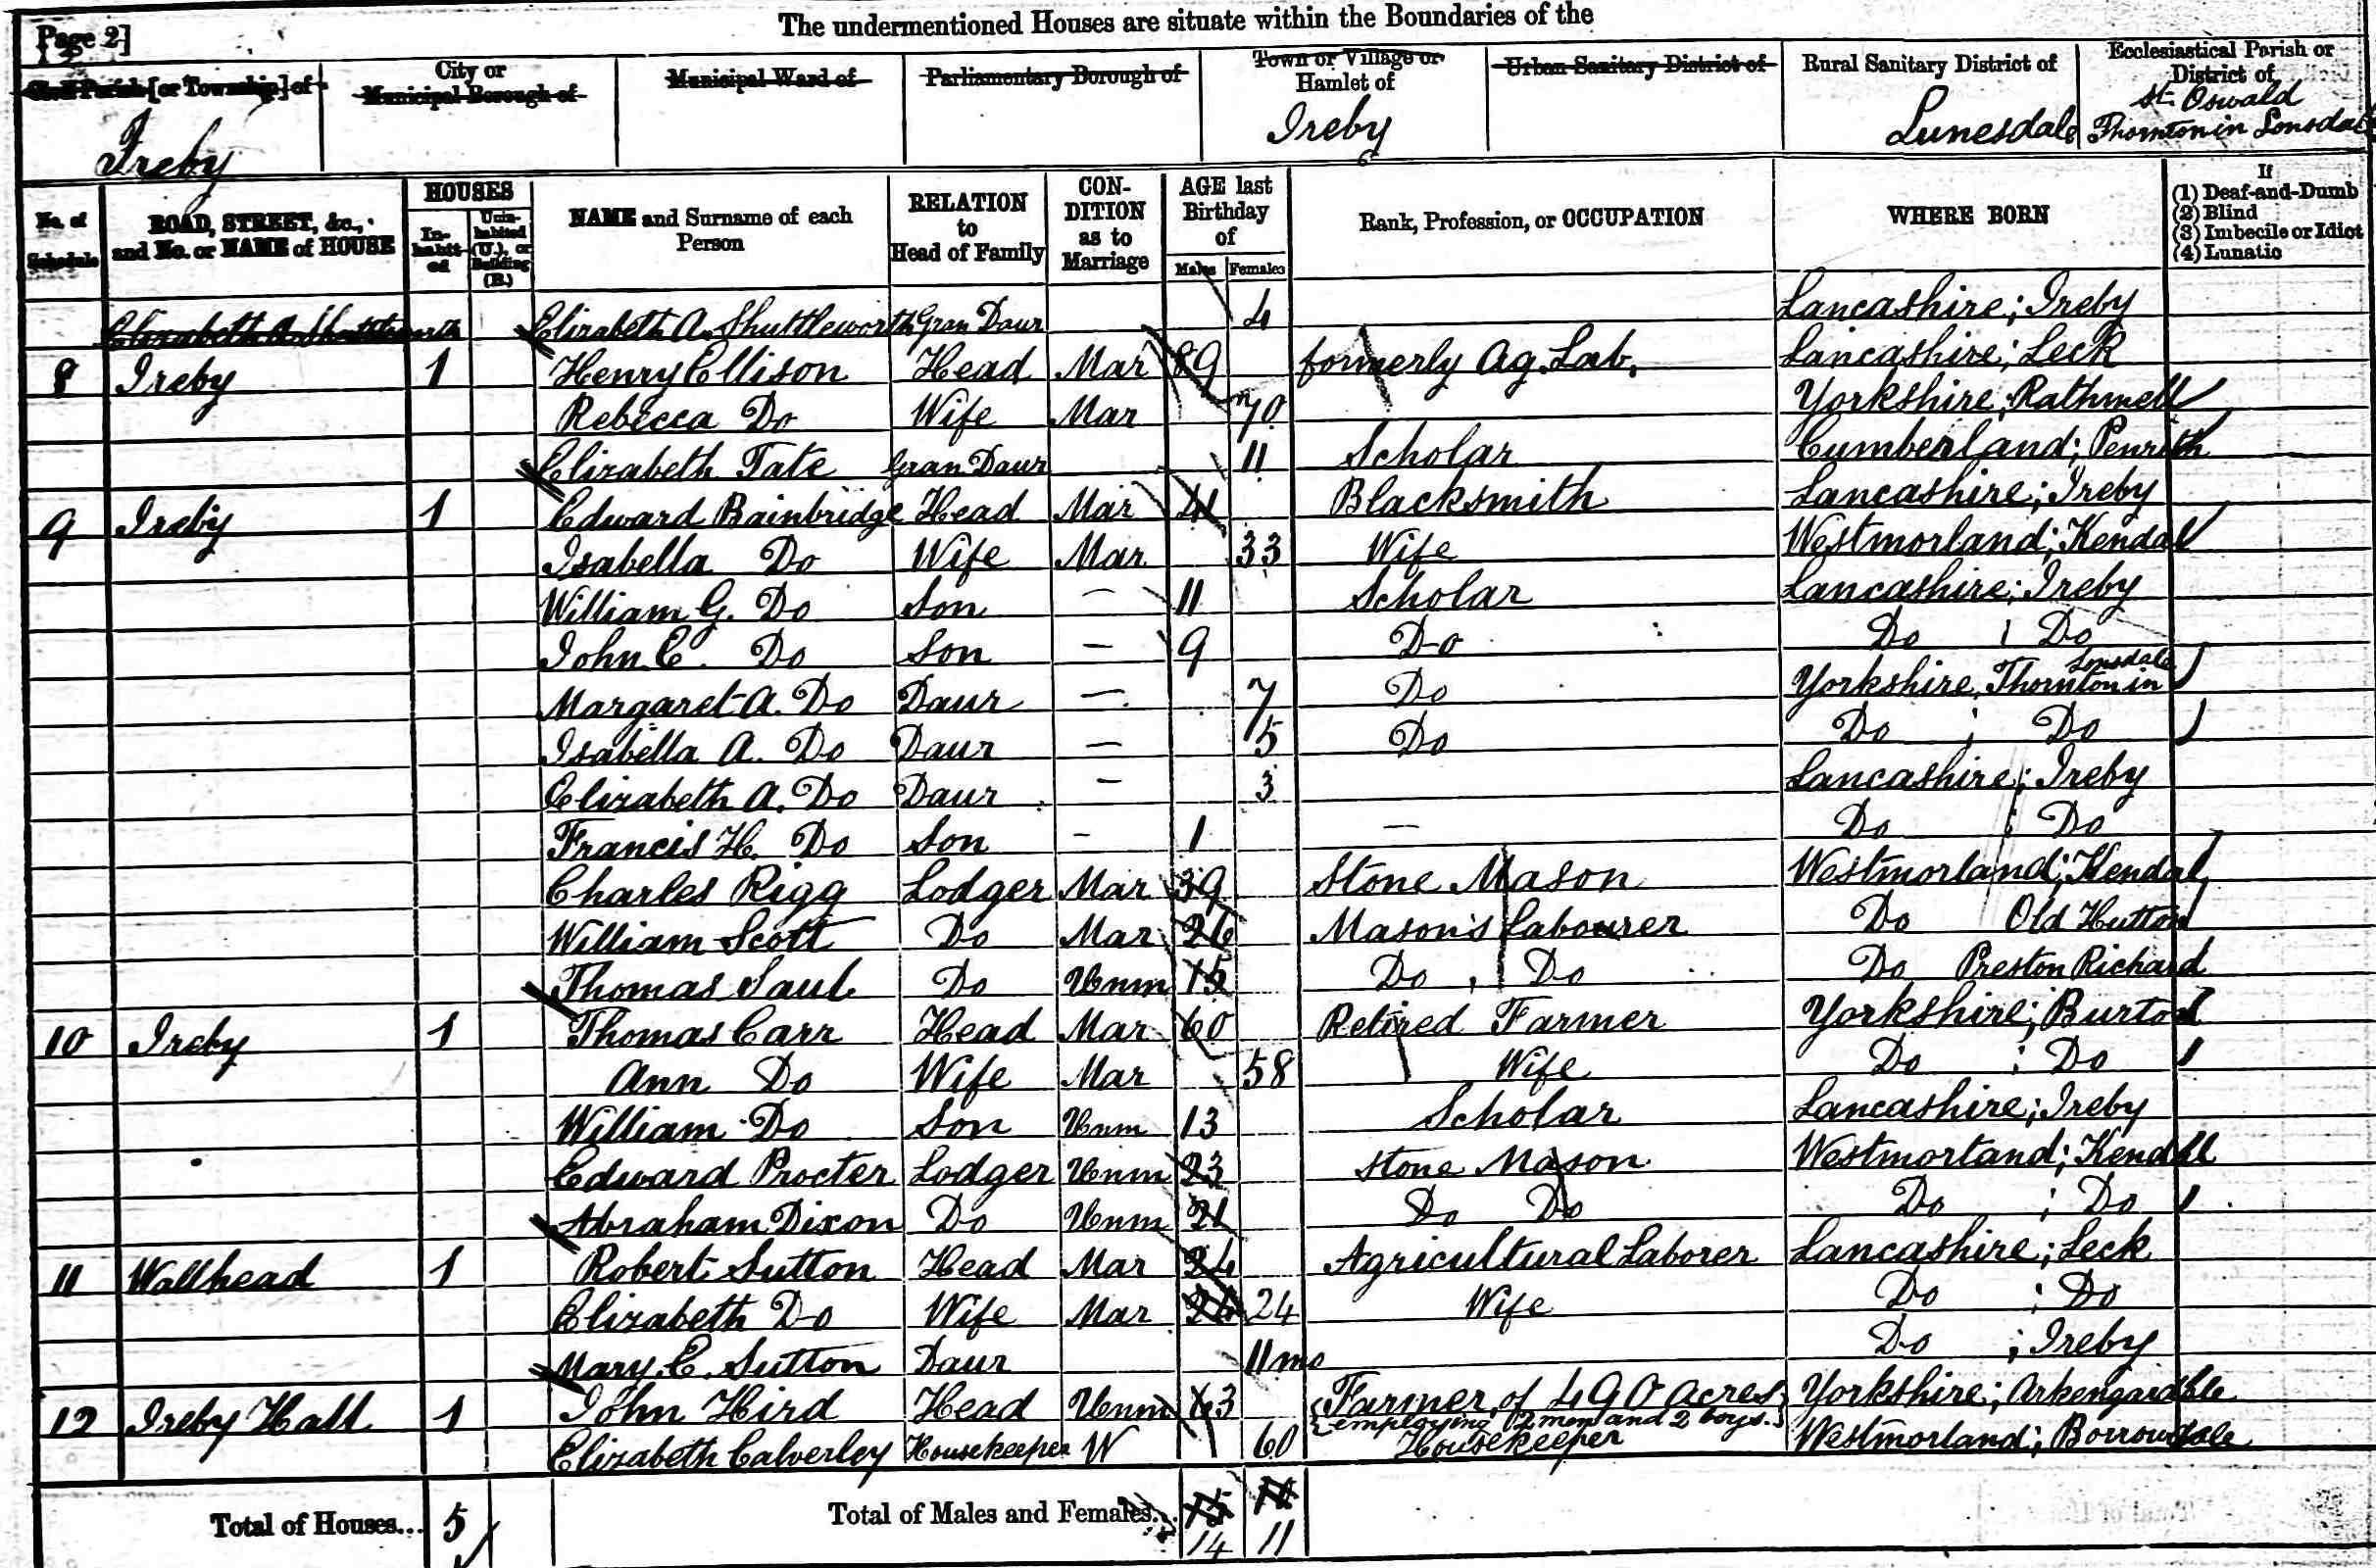 The undermentioned Houses are situate within the Boundaries of the
Page 2]
Civil Parish [or Township] of
Ireby
City or
Municipal Borough of
Municipal Ward of
Parliamentary Borough of
Town or Village or
Hamlet of
Ireby
Urban Sanitary District of
Rural Sanitary District of
Lunesdale
Ecclesiastical Parish or
District of
St. Oswald
Thornton in Lonsdale
No. of
Schedule
ROAD, STREET, &c.,
and No. or NAME of HOUSE
HOUSES
In-
habit-
ed
Unin-
habited
(U.), or
Building
(B.)
NAME and Surname of each
Person
RELATION
to
Head of Family
CON-
DITION
as to
Marriage
AGE last
Birthday
of
Males Females
Rank, Profession, or OCCUPATION
WHERE BORN
If
(1) Deaf-and-Dumb
(2) Blind
(3) Imbecile or Idiot
(4) Lunatic
Elizabeth A Shuttleworth Elizabeth A. Shuttleworth Gran Daur 4 Lancashire; Ireby
8 Ireby 1 Henry Ellison Head Mar 89 formerly Ag. Lab. Lancashire; Leck
Rebecca Do Wife Mar 70 Yorkshire; Rathmell
Elizabeth Tate Gran Daur 11 Scholar Cumberland; Penrith
9 Ireby 1 Edward Bainbridge Head Mar 41 Blacksmith Lancashire; Ireby
Isabella Do Wife Mar 33 Wife Westmorland; Kendal
William G. Do Son — 11 Scholar Lancashire; Ireby
John E. Do Son — 9 Do Do ; Do
Margaret A. Do Daur — 7 Do Yorkshire, Thornton in Lonsdale
Isabella A. Do Daur — 5 Do Do ; Do
Elizabeth A. Do Daur — 3 Lancashire; Ireby
Francis H. Do Son — 1 — Do ; Do
Charles Rigg Lodger Mar 39 Stone Mason Westmorland; Kendal
William Scott Do Mar 26 Mason's Labourer Do Old Hutton
Thomas Saul Do Unm 15 Do , Do Do Preston Richard
10 Ireby 1 Thomas Carr Head Mar 60 Retired Farmer Yorkshire; Burton
Ann Do Wife Mar 58 Wife Do ; Do
William Do Son Unm 13 Scholar Lancashire; Ireby
Edward Procter Lodger Unm 23 Stone Mason Westmorland; Kendal
Abraham Dixon Do Unm 21 Do Do Do ; Do
11 Wallhead 1 Robert Sutton Head Mar 24 Agricultural Laborer Lancashire; Leck
Elizabeth Do Wife Mar 24 Wife Do ; Do
Mary E. Sutton Daur 11 mo Do ; Ireby
12 Ireby Hall 1 John Hird Head Unm 63 {Farmer of 490 acres} Yorkshire; Arkengardale
{employing 2 men and 2 boys.}
Elizabeth Calverley Housekeeper W 60 Housekeeper Westmorland; Borrowdale
Total of Houses... 5
Total of Males and Females... 15
14 11